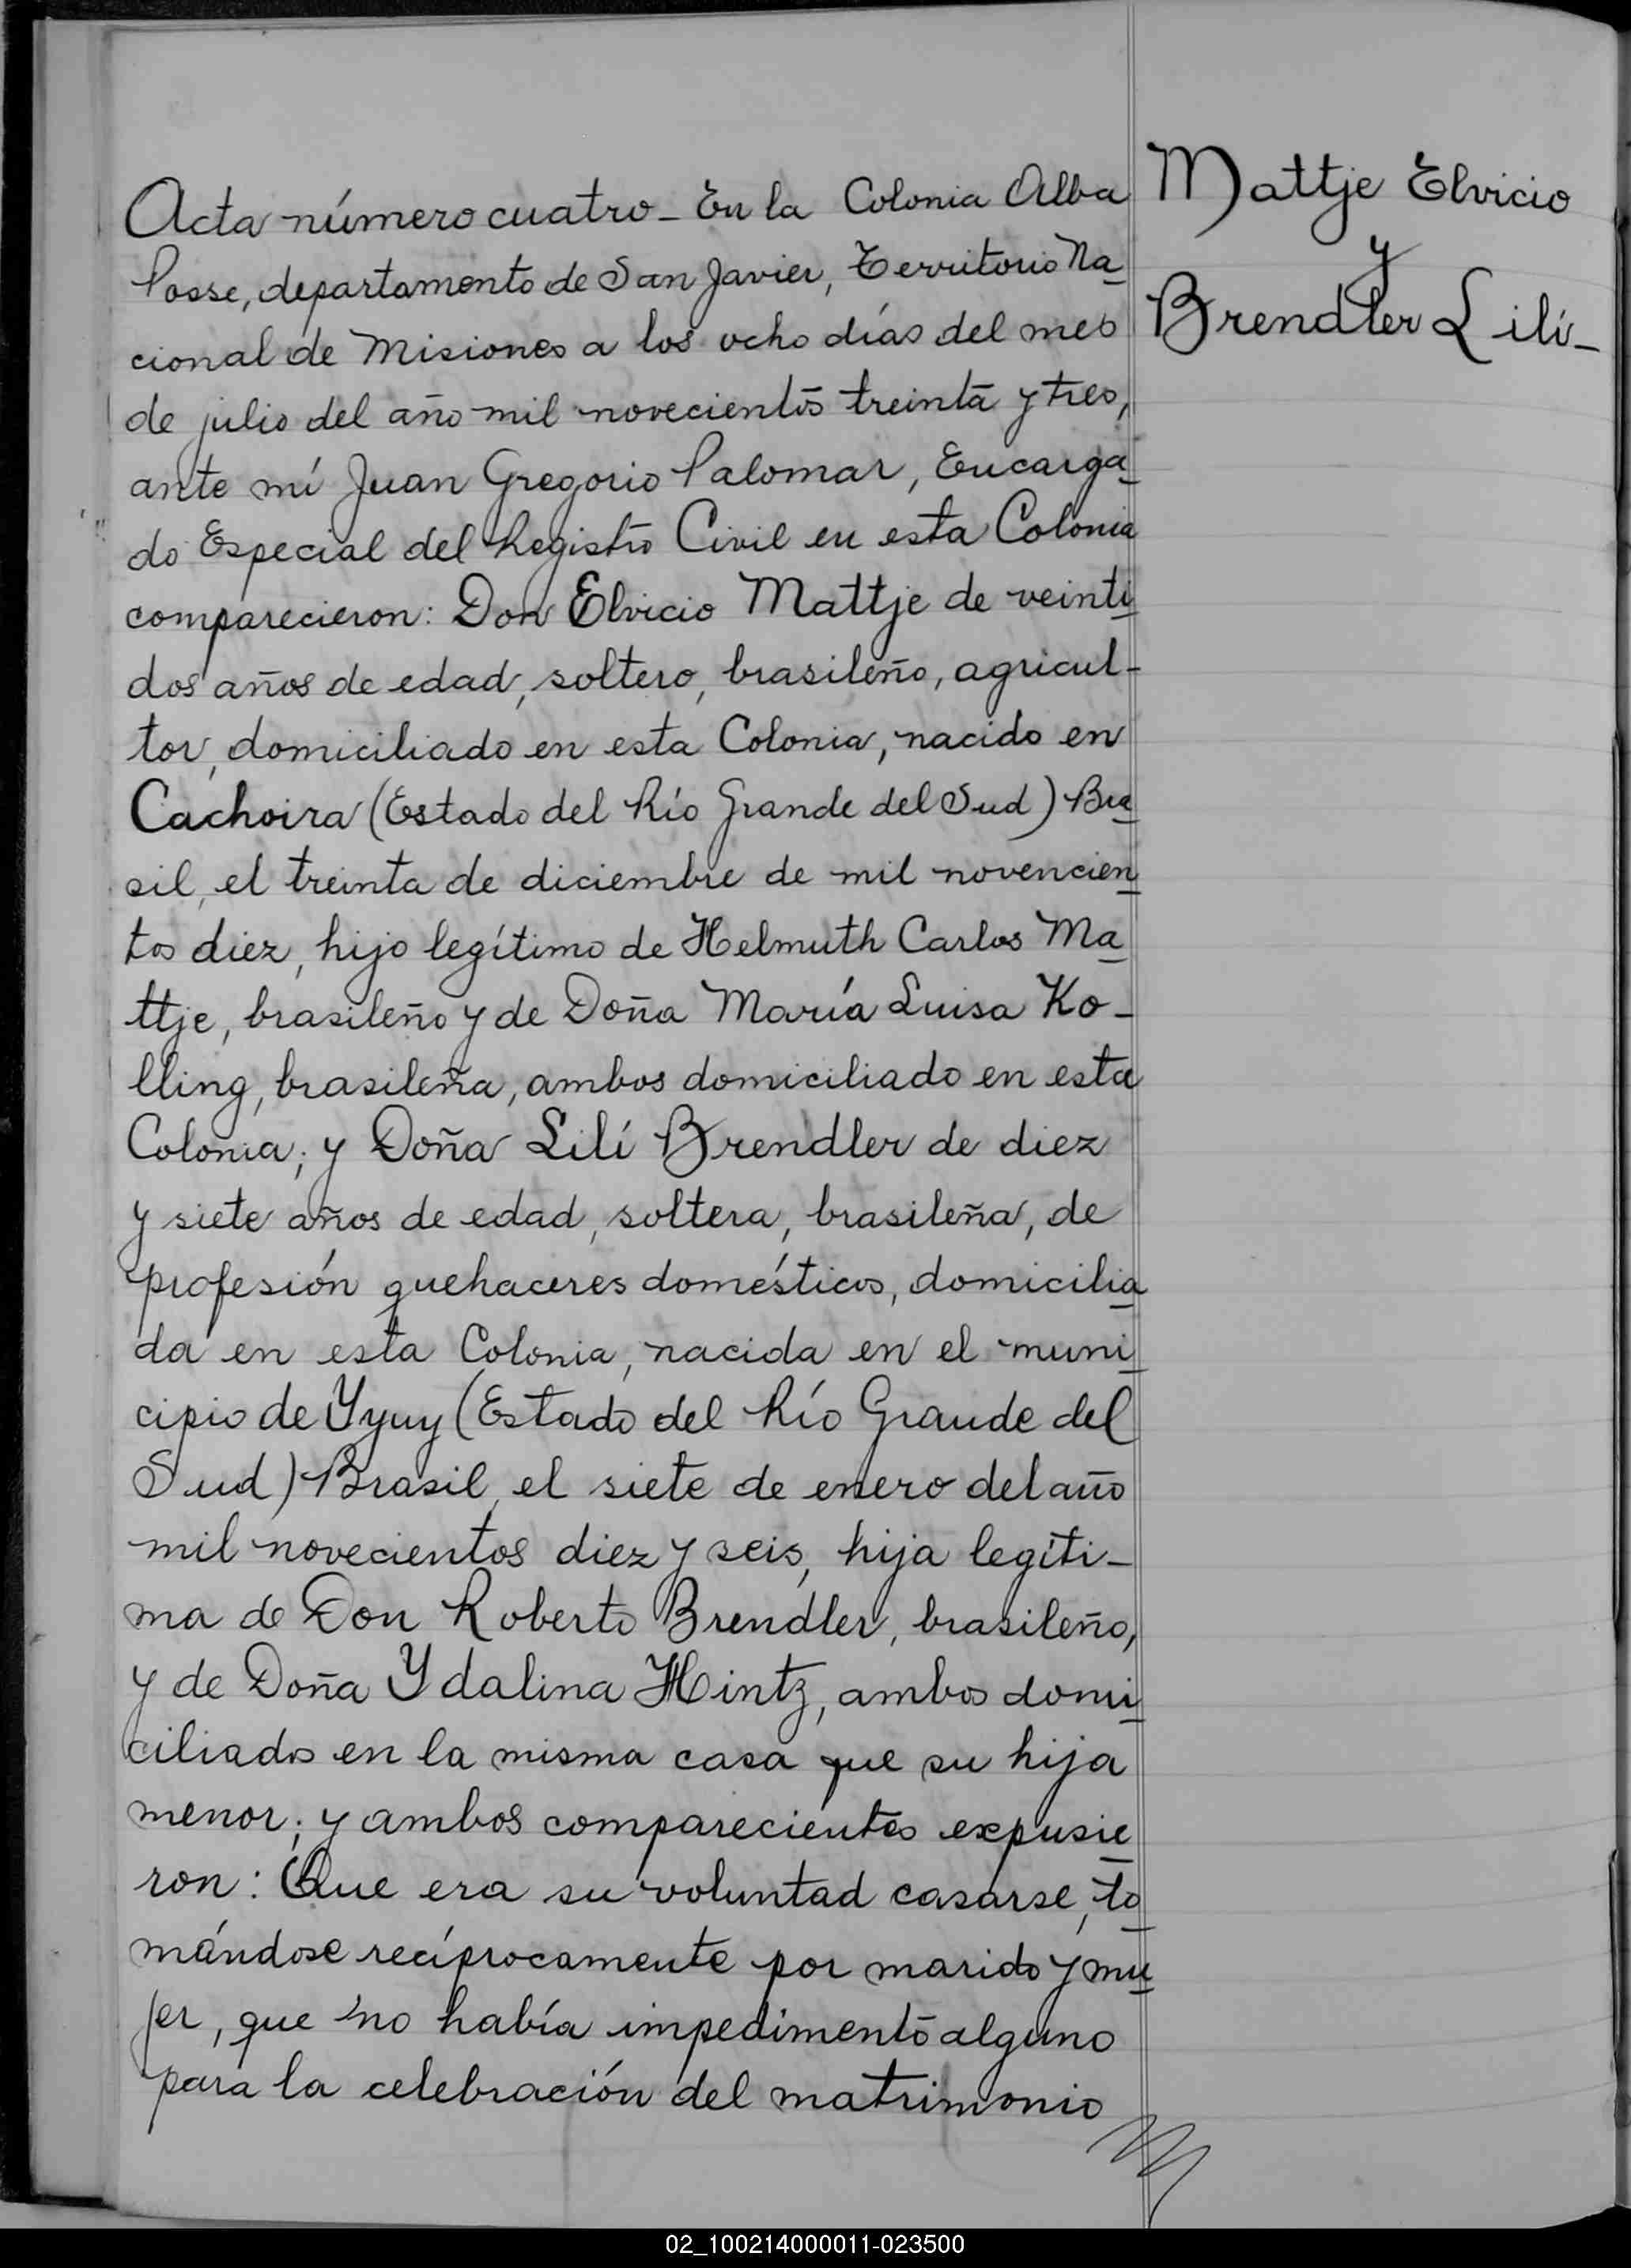 Acta número cuatro - En la Colonia Alba
Posse, departamento de San Javier, Territorio Na-
cional de Misiones a los ocho días del mes
de julio del año mil novecientos treinta y tres,
ante mí Juan Gregorio Palomar, Encarga-
do Especial del Registro Civil en esta Colonia
comparecieron: Don Elvicio Mattje de veinti-
dos años de edad, soltero, brasileño, agricul-
tor, domiciliado en esta Colonia, nacido en
Cachoira (Estado del Río Grande del Sud) Bra-
sil, el treinta de diciembre de mil novencien-
tos diez, hijo legítimo de Helmuth Carlos Ma-
ttje, brasileño y de Doña María Luisa Ko-
lling, brasileña, ambos domiciliado en esta
Colonia; y Doña Lilí Brendler de diez
y siete años de edad, soltera, brasileña, de
profesión quehaceres domésticos, domicilia-
da en esta Colonia, nacida en el muni-
cipio de Yyuy (Estado del Río Grande del
Sud) Brasil, el siete de enero del año
mil novecientos diez y seis, hija legíti-
ma de Don Roberto Brendler, brasileño,
y de Doña Ydalina Hintz, ambos domi-
ciliados en la misma casa que su hija
menor; y ambos comparecientes expusie-
ron: Que era su voluntad casarse, to-
mándose recíprocamente por marido y mu-
jer, que no había impedimento alguno
para la celebración del matrimonio
Mattje Elvicio
y
Brendler Lilí-
02_100214000011-023500